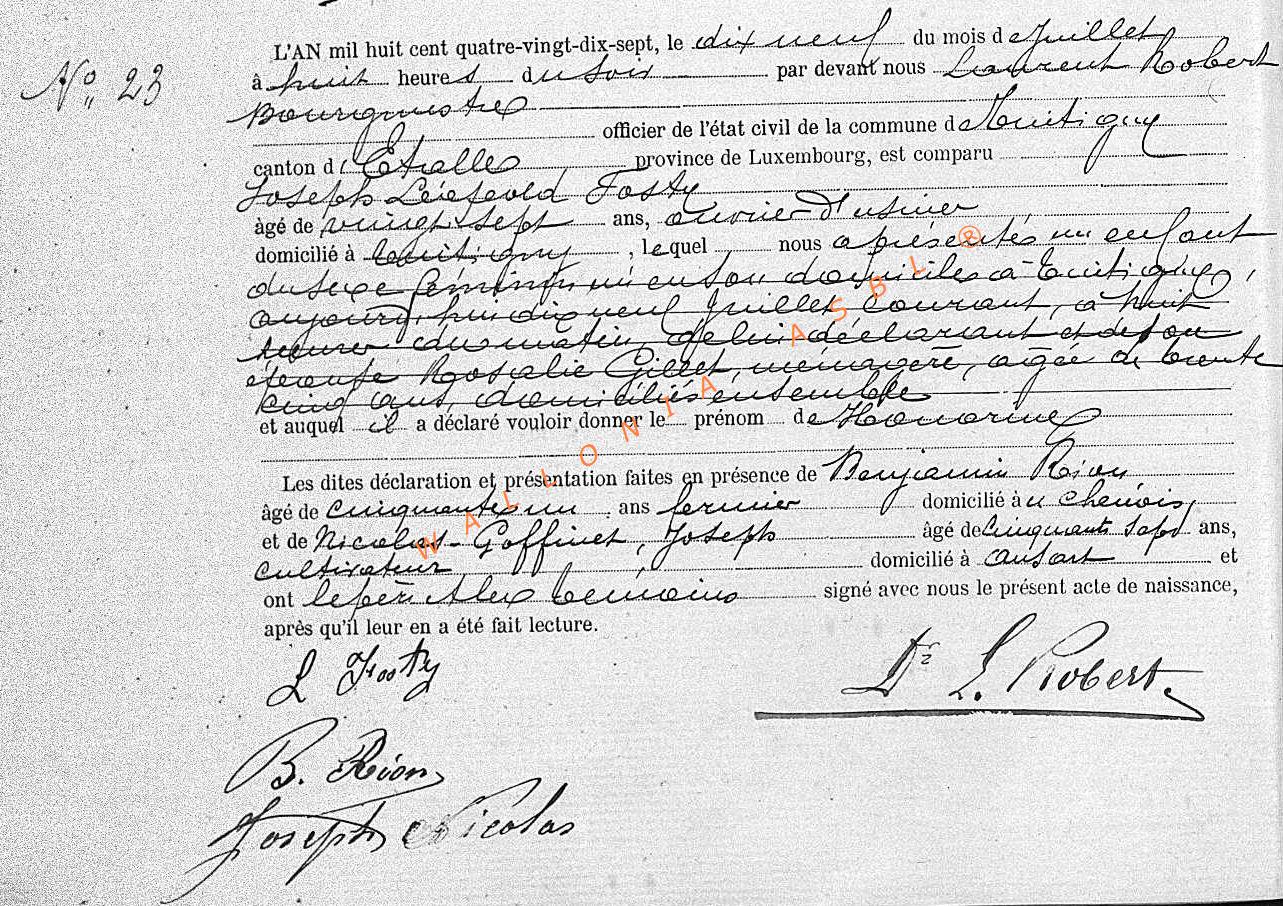 L'AN mil huit cent quatre-vingt-dix-sept, le dix neuf du mois de Juillet
N° 23
à huit heures du soir par devant nous Laurent Robert
Bourgmestre
officier de l'état civil de la commune de Tintigny
canton d' Etalle province de Luxembourg, est comparu
Joseph Léopold Fosty
âgé de vingt sept ans, ouvrier d'usine
domicilié à Tintigny, lequel nous a présentés un enfant
du sexe féminin, né en son domicile à Tintigny,
aujourd'hui dix neuf Juillet courant, à huit
heures du matin, de lui déclarant et de son
épouse Rosalie Gillet, ménagère, agée de trente
cinq ans, domiciliés ensemble
et auquel il a déclaré vouloir donner le prénom de Honorine
Les dites déclaration et présentation faites en présence de Benjamin Rion
âgé de cinquante un ans fermier domicilié à u chenois,
et de Nicolas-Goffinet, Joseph âgé de Cinquante Sept ans,
cultivateur domicilié à ansart et
ont le père et les témoins signé avec nous le présent acte de naissance,
après qu'il leur en a été fait lecture.
L Fosty
Dr L. Robert.
B. Rion
Joseph Nicolas
WALLONIA ASBL ®